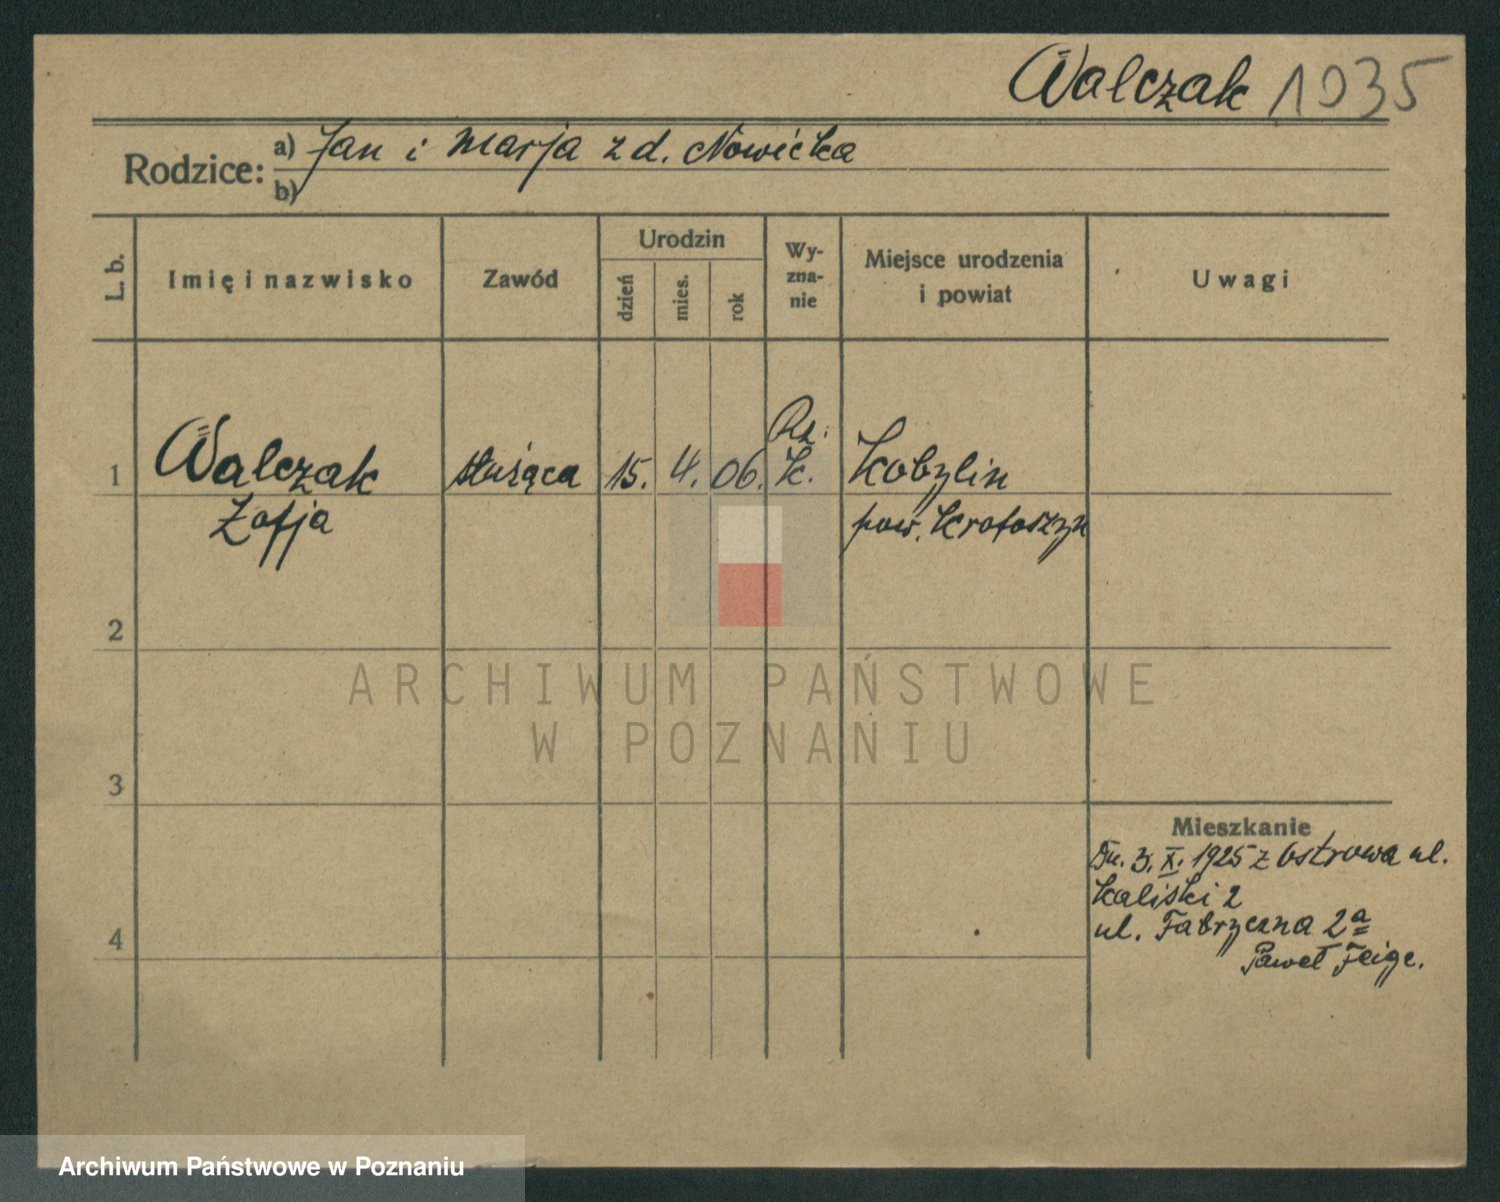 Walczak 1035
Rodzice:
a) Jan i Marja z d. Nowicka
b)
L. b.
Imię i nazwisko
Zawód
Urodzin
dzień
mies.
rok
Wy-
zna-
nie
Miejsce urodzenia
i powiat
Uwagi
1
Walczak
Zofja
służąca
15. 4. 06.
Rz.
K.
Kobylin
pow. Krotoszyn
2
3
4
Mieszkanie
Dn. 3. X. 1925 z Ostrowa ul.
Kaliski 2
ul. Fabryczna 2a
Paweł Feige.
ARCHIWUM PAŃSTWOWE
W POZNANIU
Archiwum Państwowe w Poznaniu